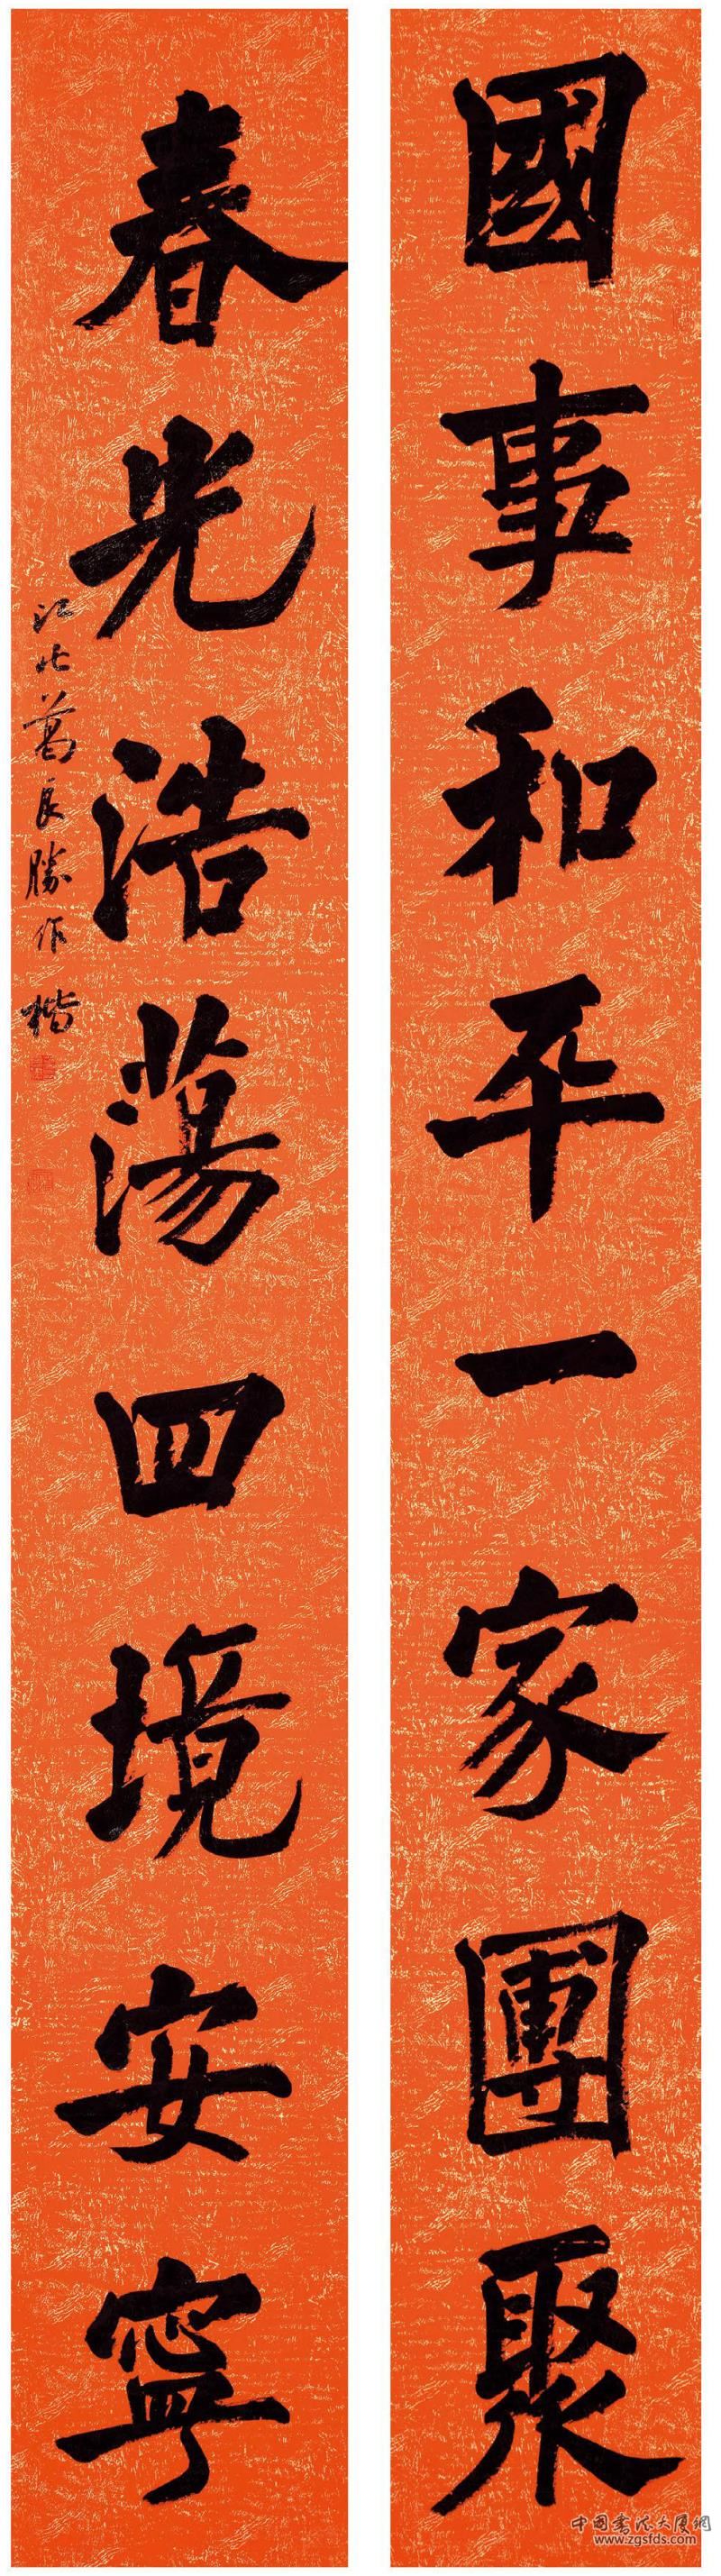 國事和平一家團聚
春光浩蕩四境安寧
江北葛良勝作楷
中国书法大厦网
www.zgsfds.com